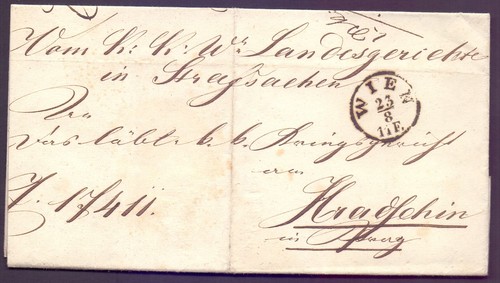 Vom K: K. Wr Landesgerichte
in Strafsachen
WIEN
23
8
11F.
An
das löbl: k. k. Kriegsgericht
am
Z. 17411.
Hradschin
in Prag